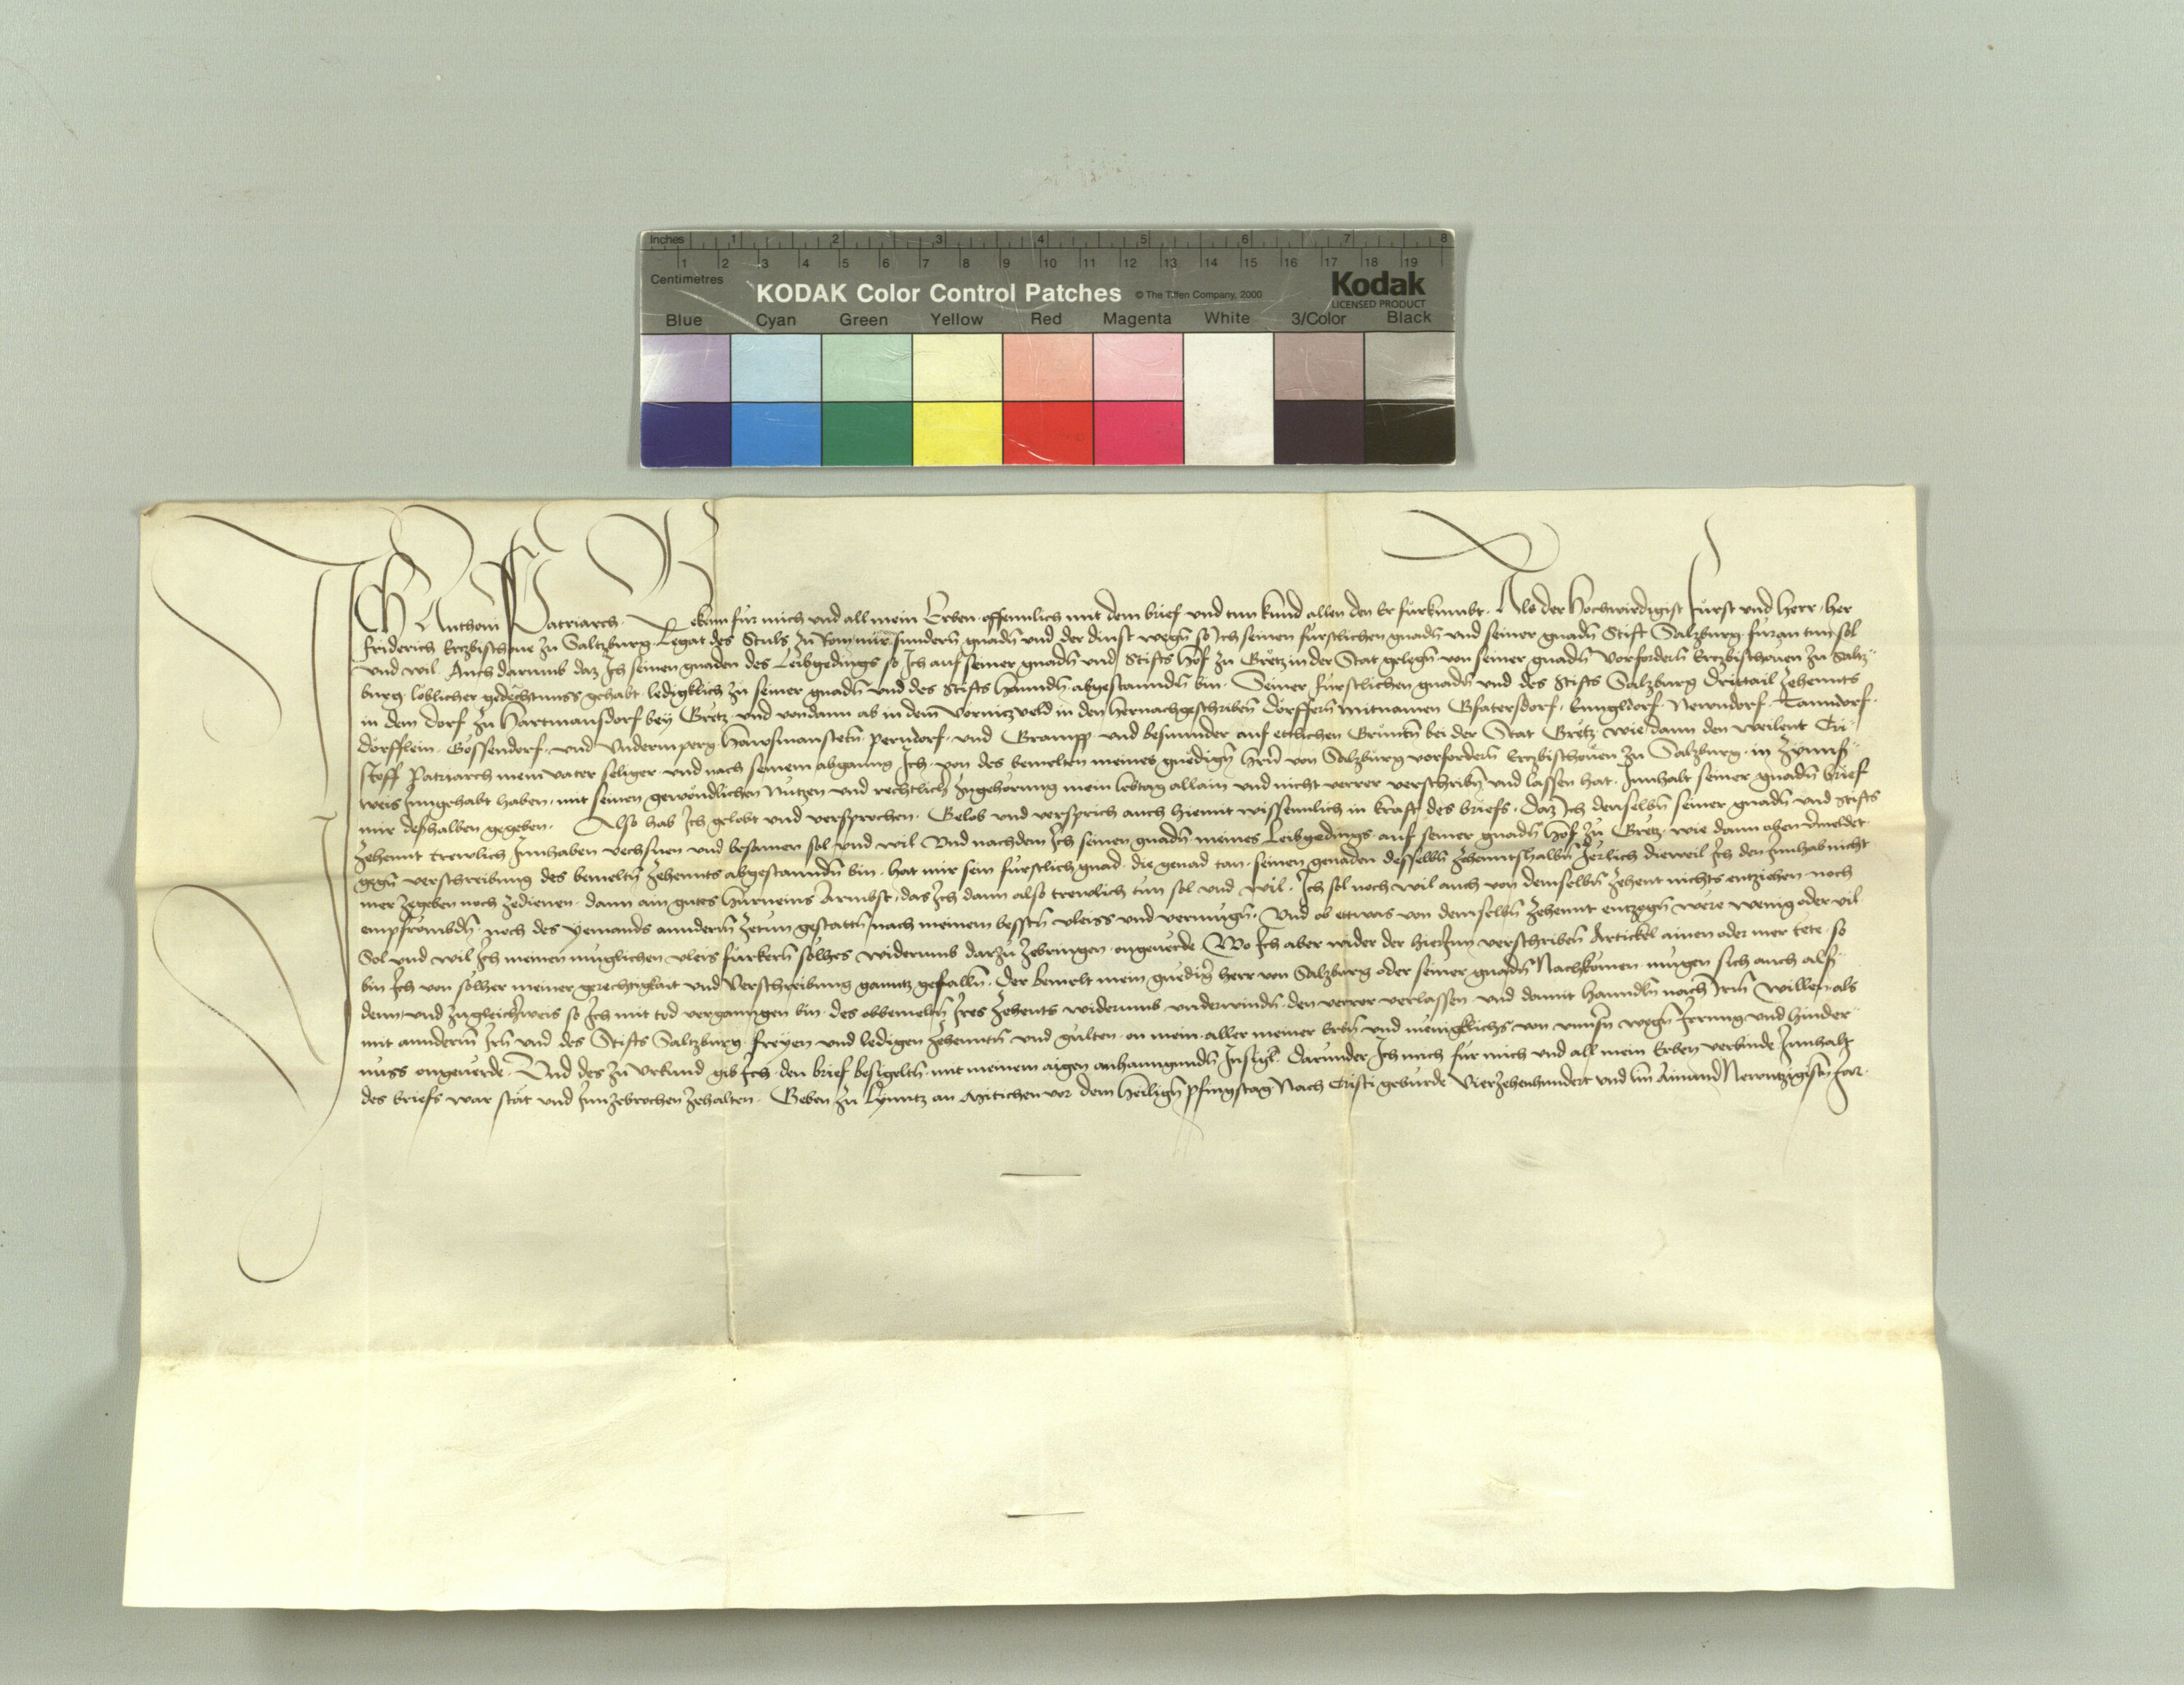 Inches 1 2 3 4 5 6 7 8
1 2 3 4 5 6 7 8 9 10 11 12 13 14 15 16 17 18 19
Centimetres
KODAK Color Control Patches © The Tiffen Company, 2000 Kodak
LICENSED PRODUCT
Blue Cyan Green Yellow Red Magenta White 3/Color Black
ICH Anthoni Patriarch Bekenn fur mich und all mein Erben offennlich mit dem brief und tun kund allen den Er furkumbt. Als der Hochwirdigist Fürst und Herr, her
Friderich Erczbischoue zu Saltzburg Legat des Stuls zu Rom mir sundern gnadn und der dinst wegn so Ich seinen fürstlichen gnadn und seiner gnadn Stift Salzburg furan tun sol
und wil. Auch darumb daz Ich seinen gnaden des Leibgedings so Ich auf seiner gnadn und Stifts hof zu Gretz in der Stat gelegn von seiner gnadn vorfordern Erczbischouen zu Saltz¬
burg loblicher gedechtnuss gehabt ledigklich zu seiner gnadn und des Stifts hanndn abgestanndn bin. Seiner fürstlichen gnadn und des Stifts Salzburg Drittail zehennts
in dem dorf zu Hartmansdorf bey Gretz und vondann ab in dem veld in den hernachgeschriben dörffern mitnamen Gsatersdorf, Enngldorf, Newndorf, Tanndorf,
dörfflein, Gössendorf, und Vndermperg Hawsmanstetn, Perndorf, und und besunnder auf ettlichen Gruntn bei der Stat Gretz, wie dann den weilent Cri¬
stoff Patriarch mein vater seliger und nach seinem abganng Ich von des bemelten meines gnedign hrn von Salzburg vorfordern Erczbischouen zu Salzburg in
weis Inngehabt haben, mit seinen gewöndlichen Nutzen und rechtlich zugehorung mein lebtag allain und nicht verrer verschribn und lassen hat, Innhalt seiner gnadn brief
mir deshalben gegeben. Also hab Ich gelobt und versprochen. Gelob und versprich auch hiemit wissennlich in kraft des briefs, daz Ich denselbn seiner gnadn und Stifts
zehennt trewlich Innhaben vechsnen und besamen sol und wil Und nachdem Ich seinen gnadn meines Leibgedings auf seiner gnadn hof zu Gretz, wie dann oben vermeldet
gegn verschreibung des bemeltn zehennts abgestanndn bin, hat mir sein fürstlich gnad die genad tan, seinen genaden desselbn zehenntshalbn Jerlich dieweil Ich den Innhab nicht
mer zegeben noch zedienen, dann ain guts hürneins Armbst, das Ich dann also trewlich tun sol und wil. Ich sol noch wil auch von demselbn zehent nichts entziehen noch
empfrömbdn, noch des yemands anndern zetun gestattn nach meinem besstn vleiss und vermugn. Und ob ettwas von demselbn zehennt entzogn were wenig oder vil
Sol und wil Ich meinen muglichen vleis fürkern solhes widerumb darzu zebringen ongeuerde Wo Ich aber wider der hierInn verschriben Artickel ainen oder mer tete so
bin Ich von solher meiner gerechtigkait und Verschreibung ganntz gefalln. Der bemelt mein gnedig herr von Salzburg oder seiner gnadn Nachkomen mugen sich auch alß¬
denn und zugleichweis so Ich mit tod verganngen bin, des obbemeltn Ires zehents widerumb underwindn, den verrer verlassen und damit hanndln nach Irm willen als
mit anndern Irn und des Stifts Saltzburg freyen und ledigen zehenntn und gülten on mein aller meiner Erbn und menigklichs von unnsern wegn Irrung und hinder¬
nuss ongeuerde. Und des zu Urkund gib Ich den brief besigeltn mit meinem aigen anhanngundn Insigl. Darunder Ich mich für mich und all mein Erben verbinde Innhalt
des briefs war stät und unzebrochen zehalten. Geben zu Lynntz an Mitichen vor dem heiligen Pfingstag Nach Cristi geburde Vierzehenhundert und im Ainund Newntzigistn Jar.